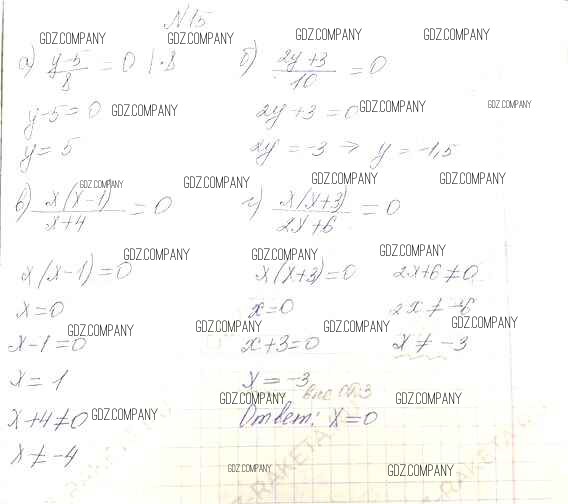 N15
GDZ.COMPANY GDZ.COMPANY GDZ.COMPANY GDZ.COMPANY
а) (y-5)/8 = 0 | ·8 б) (2y+3)/10 = 0
y-5=0 GDZ.COMPANY 2y+3=0 GDZ.COMPANY GDZ.COMPANY
y=5 2y=-3 → y=-1,5
GDZ.COMPANY GDZ.COMPANY GDZ.COMPANY GDZ.COMPANY
в) x(x-1)/(x+4) = 0 г) x(x+3)/(2x+6) = 0
GDZ.COMPANY GDZ.COMPANY GDZ.COMPANY
x(x-1)=0 x(x+3)=0 2x+6≠0
x=0 x=0 2x≠-6
GDZ.COMPANY GDZ.COMPANY GDZ.COMPANY GDZ.COMPANY
x-1=0 x+3=0 x≠-3
x=1 x=-3
GDZ.COMPANY GDZ.COMPANY
x+4≠0 GDZ.COMPANY Ответ: x=0
x≠-4
GDZ.COMPANY GDZ.COMPANY